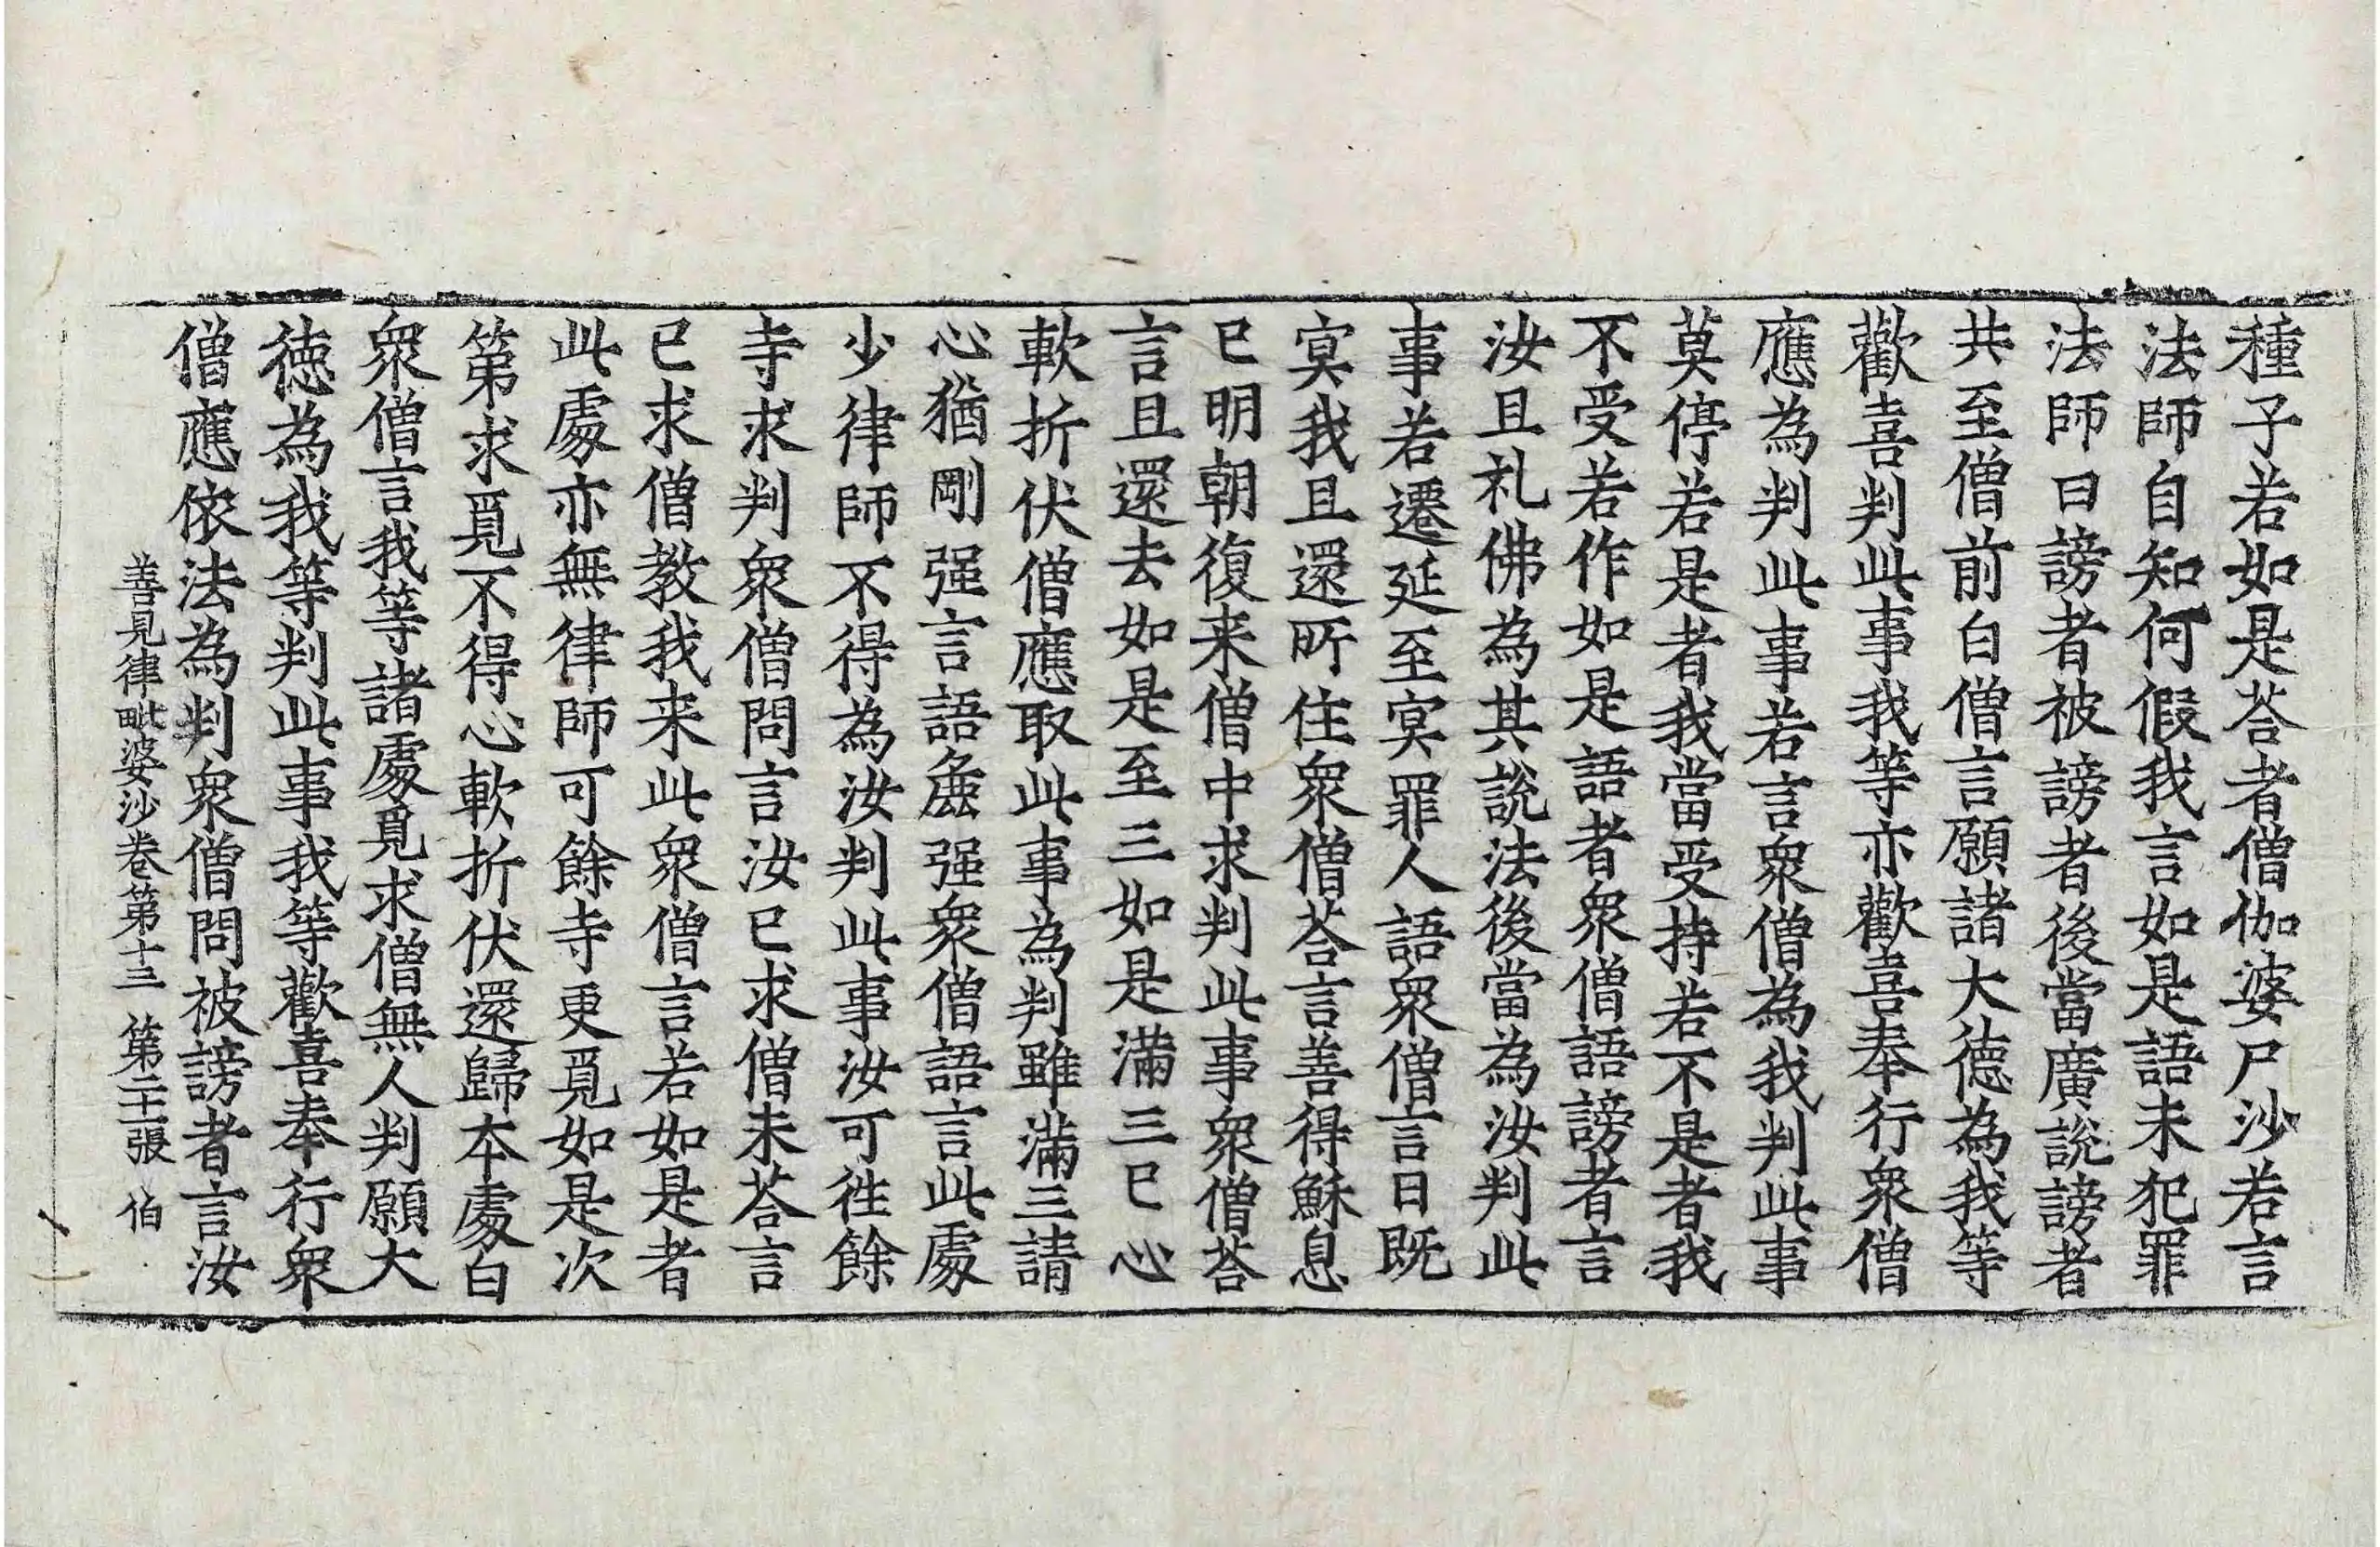 種子若如是荅者僧伽婆尸沙若言
法師自知何假我言如是語未犯罪
法師曰謗者被謗者後當廣說謗者
共至僧前白僧言願諸大德為我等
歡喜判此事我等亦歡喜奉行衆僧
應為判此事若言衆僧為我判此事
莫停若是者我當受持若不是者我
不受若作如是語者衆僧語謗者言
汝且礼佛為其說法後當為汝判此
事若遷延至㝠罪人語衆僧言日既
㝠我且還所住衆僧荅言善得穌息
已明朝復来僧中求判此事衆僧荅
言且還去如是至三如是滿三已心
軟折伏僧應取此事為判雖滿三請
心猶剛强言語麁强衆僧語言此處
少律師不得為汝判此事汝可徃餘
寺求判衆僧問言汝已求僧未荅言
已求僧教我来此衆僧言若如是者
此處亦無律師可餘寺更覓如是次
第求覓不得心軟折伏還歸本處白
衆僧言我等諸處覓求僧無人判願大
德為我等判此事我等歡喜奉行衆
僧應依法為判衆僧問被謗者言汝
善見律毗婆沙卷第十三 第二十一張 伯